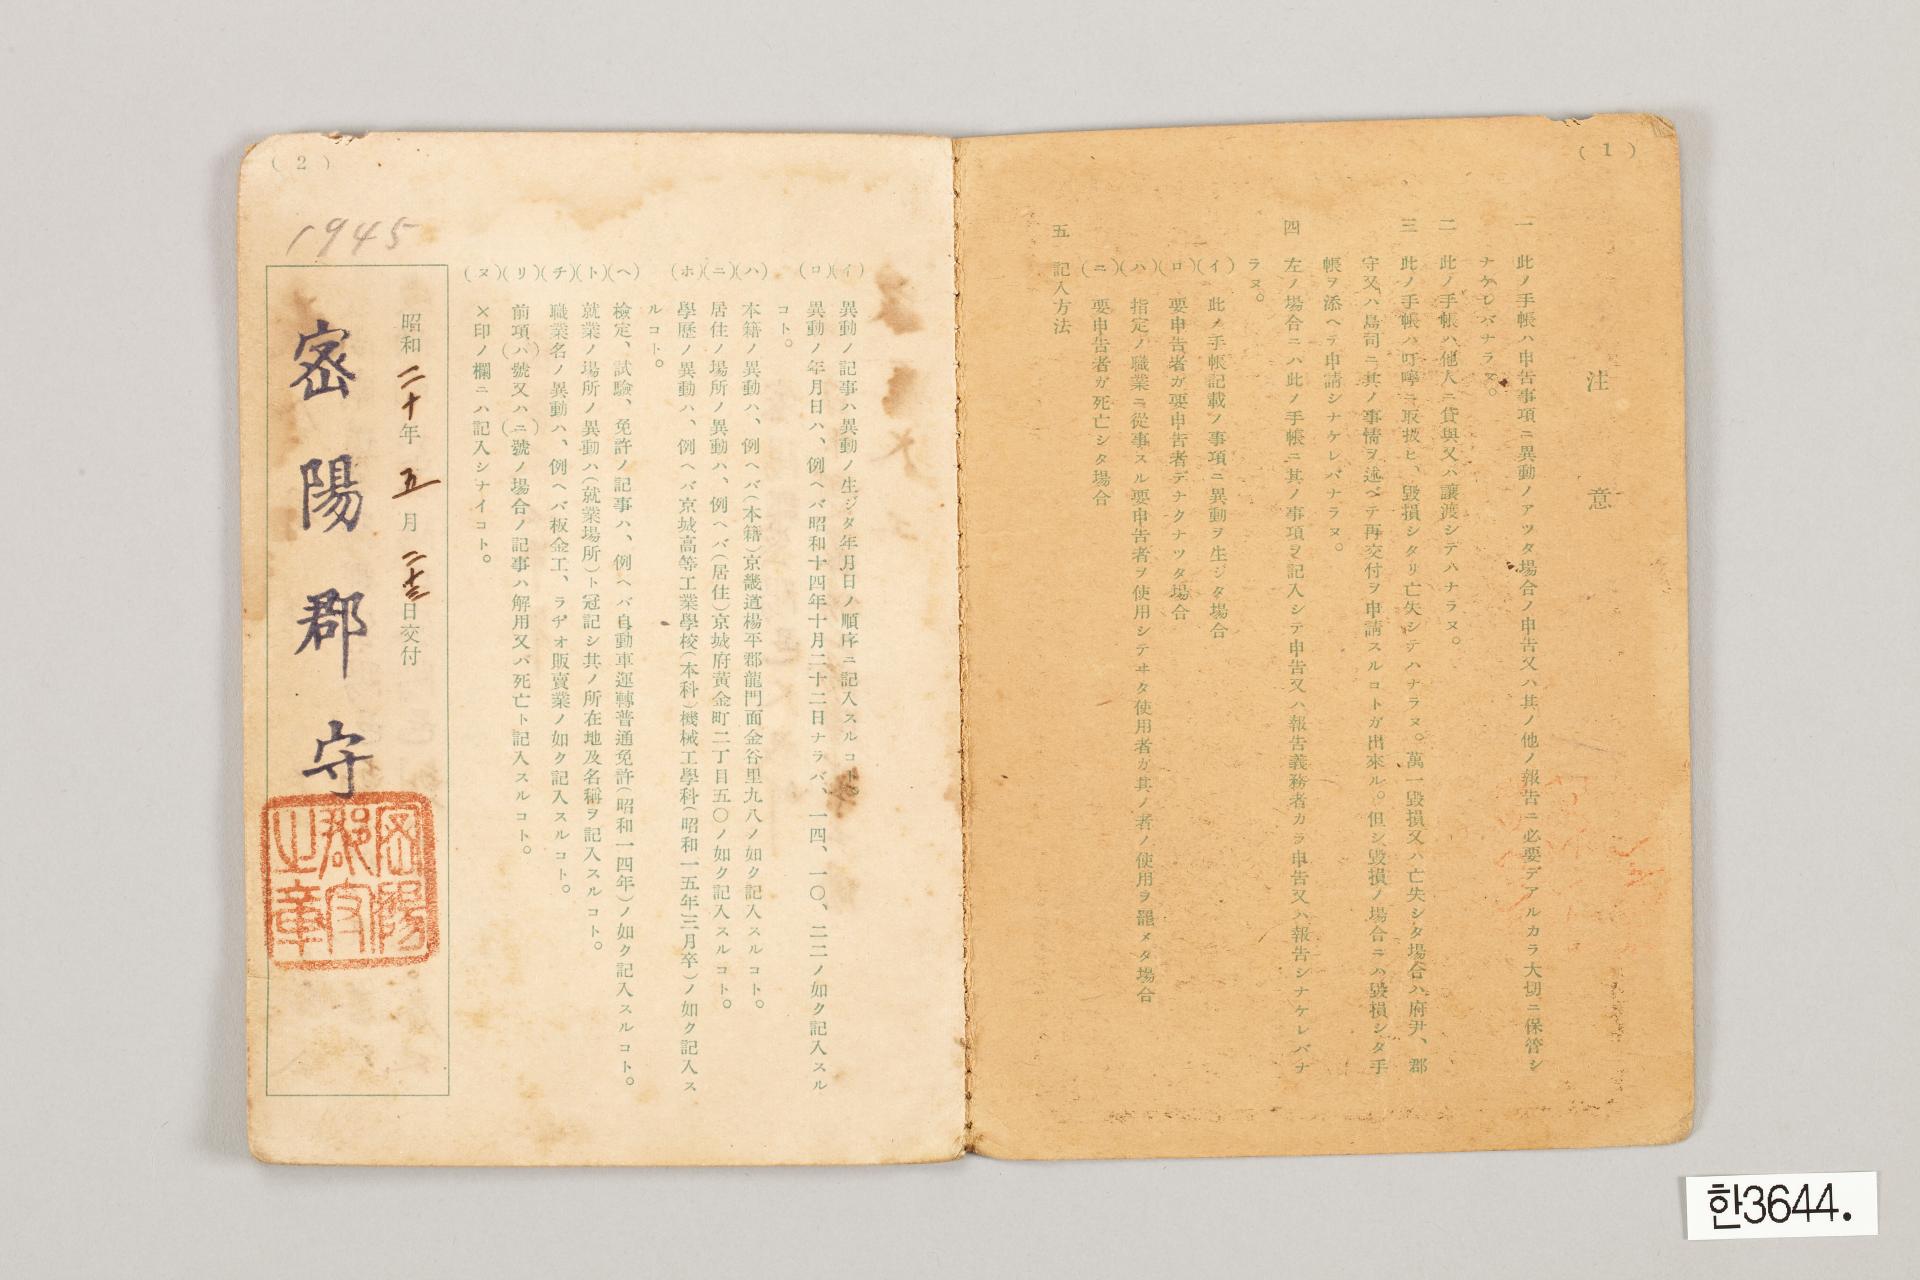 (1)
注意
一 此ノ手帳ハ申告事項ニ異動ノアツタ場合ノ申告又ハ其ノ他ノ報告ニ必要デアルカラ大切ニ保管シ
ナケレバナラヌ。
二 此ノ手帳ハ他人ニ貸與又ハ讓渡シテハナラヌ。
三 此ノ手帳ハ叮嚀ニ取扱ヒ、毀損シタリ亡失シテハナラヌ。萬一毀損又ハ亡失シタ場合ハ府尹、郡
守又ハ島司ニ其ノ事情ヲ述ベテ再交付ヲ申請スルコトガ出來ル。但シ毀損ノ場合ニハ毀損シタ手
帳ヲ添ヘテ申請シナケレバナラヌ。
四 左ノ場合ニハ此ノ手帳ニ其ノ事項ヲ記入シテ申告又ハ報告義務者カラ申告又ハ報告シナケレバナ
ラヌ。
(イ) 此ノ手帳記載ノ事項ニ異動ヲ生ジタ場合
(ロ) 要申告者ガ要申告者デナクナツタ場合
(ハ) 指定ノ職業ニ從事スル要申告者ヲ使用シテヰタ使用者ガ其ノ者ノ使用ヲ罷メタ場合
(ニ) 要申告者ガ死亡シタ場合
五 記入方法
(2)
(イ) 異動ノ記事ハ異動ノ生ジタ年月日ノ順序ニ記入スルコト。
(ロ) 異動ノ年月日ハ、例ヘバ昭和十四年十月二十二日ナラバ、一四、一〇、二二ノ如ク記入スル
コト。
(ハ) 本籍ノ異動ハ、例ヘバ(本籍)京畿道楊平郡龍門面金谷里九八ノ如ク記入スルコト。
(ニ) 居住ノ場所ノ異動ハ、例ヘバ(居住)京城府黃金町二丁目五〇ノ如ク記入スルコト。
(ホ) 學歷ノ異動ハ、例ヘバ京城高等工業學校(本科)機械工學科(昭和一五年三月卒)ノ如ク記入ス
ルコト。
(ヘ) 檢定、試驗、免許ノ記事ハ、例ヘバ自動車運轉普通免許(昭和一四年)ノ如ク記入スルコト。
(ト) 就業ノ場所ノ異動ハ(就業場所)ト冠記シ共ノ所在地及名稱ヲ記入スルコト。
(チ) 職業名ノ異動ハ、例ヘバ板金工、ラヂオ販賣業ノ如ク記入スルコト。
(リ) 前項(ハ)號又ハ(ニ)號ノ場合ノ記事ハ解用又バ死亡ト記入スルコト。
(ヌ) ×印ノ欄ニハ記入シナイコト。
1945
昭和二十年五月二十三日交付
密陽郡守
密陽
郡守
之章
한3644.